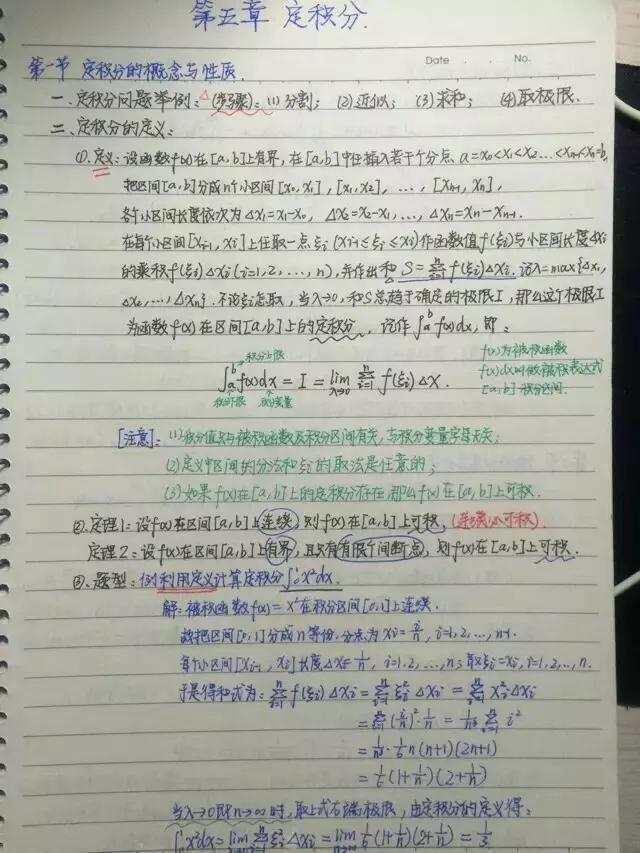 第五章 定积分.
Date . . No.
第一节 定积分的概念与性质.
一、定积分问题举例:△(步骤): (1) 分割; (2) 近似; (3) 求和; (4) 取极限.
二、定积分的定义:
①.定义:设函数f(x)在[a,b]上有界,在[a,b]中任插入若干个分点 a=x₀<x₁<x₂...<xₙ₋₁<xₙ=b,
把区间[a,b]分成n个小区间[x₀,x₁],[x₁,x₂],...,[xₙ₋₁,xₙ],
各个小区间长度依次为Δx₁=x₁-x₀, Δx₂=x₂-x₁,..., Δxₙ=xₙ-xₙ₋₁.
在每个小区间[xᵢ₋₁,xᵢ]上任取一点ξᵢ(xᵢ₋₁≤ξᵢ≤xᵢ)作函数值f(ξᵢ)与小区间长度Δxᵢ
的乘积f(ξᵢ)Δxᵢ(i=1,2,...,n),并作出和 S=∑ᵢ₌₁ⁿf(ξᵢ)Δxᵢ.记λ=max{Δx₁,
Δx₂,...,Δxₙ}.不论ξᵢ怎取,当λ→0,和S总趋于确定的极限I,那么这个极限I
为函数f(x)在区间[a,b]上的定积分,记作∫ₐᵇf(x)dx,即:
积分上限
f(x)为被积函数
∫ₐᵇf(x)dx = I = lim_{λ→0} ∑ᵢ₌₁ⁿ f(ξᵢ)ΔX.
f(x)dx叫做被积表达式
积分下限 积分变量
[a,b] 积分区间.
[注意]: (1)积分值只与被积函数及积分区间有关,与积分变量字母无关;
(2)定义中区间的分法和ξᵢ的取法是任意的;
(3)如果f(x)在[a,b]上的定积分存在,那么f(x)在[a,b]上可积.
②.定理1:设f(x)在区间[a,b]上连续,则f(x)在[a,b]上可积.(连续必可积).
定理2:设f(x)在区间[a,b]上有界,且只有有限个间断点,则f(x)在[a,b]上可积.
③.题型:例利用定义计算定积分∫₀¹x²dx.
解:被积函数f(x)=x²在积分区间[0,1]上连续.
故把区间[0,1]分成n等份,分点为xᵢ=i/n, i=1,2,...,n-1.
每个小区间[xᵢ₋₁,xᵢ]长度Δxᵢ=1/n, i=1,2,...,n;取ξᵢ=xᵢ,i=1,2,...,n.
于是得和式为:∑ᵢ₌₁ⁿf(ξᵢ)Δxᵢ=∑ᵢ₌₁ⁿξᵢ²Δxᵢ=∑ᵢ₌₁ⁿxᵢ²Δxᵢ
=∑ᵢ₌₁ⁿ(i/n)²·1/n = 1/n³∑ᵢ₌₁ⁿi²
=1/n³·1/6n(n+1)(2n+1)
=1/6(1+1/n)(2+1/n)
当λ→0即n→∞时,取上式右端极限,由定积分的定义得:
∫₀¹x²dx=lim_{λ→0}∑ᵢ₌₁ⁿξᵢ²Δxᵢ=lim_{n→∞}1/6(1+1/n)(2+1/n)=1/3